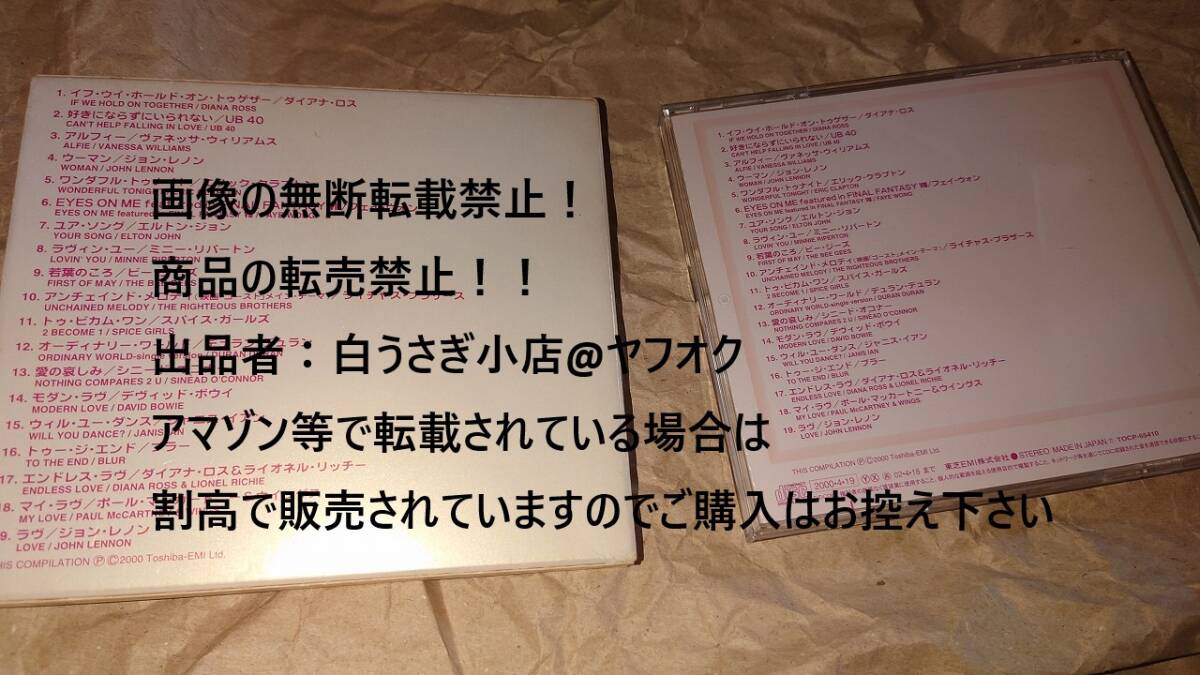 1. イフ・ウイ・ホールド・オン・トゥゲザー/ダイアナ・ロス
IF WE HOLD ON TOGETHER / DIANA ROSS
2. 好きにならずにいられない/UB 40
CAN'T HELP FALLING IN LOVE / UB 40
3. アルフィー/ヴァネッサ・ウィリアムス
ALFIE / VANESSA WILLIAMS
4. ウーマン/ジョン・レノン
WOMAN / JOHN LENNON
5. ワンダフル・トゥナイト/エリック・クラプトン
WONDERFUL TONIGHT
6. EYES ON ME
EYES ON ME featured in FINAL FANTASY
7. ユア・ソング/エルトン・ジョン
YOUR SONG / ELTON JOHN
8. ラヴィン・ユー/ミニー・リパートン
LOVIN' YOU / MINNIE RIPERTON
9. 若葉のころ/ビー・ジーズ
FIRST OF MAY / THE BEE GEES
10. アンチェインド・メロディ
UNCHAINED MELODY / THE RIGHTEOUS BROTHERS
11. トゥ・ビカム・ワン/スパイス・ガールズ
2 BECOME 1 / SPICE GIRLS
12. オーディナリー・ワールド/デュラン・デュラン
ORDINARY WORLD-single version / DURAN DURAN
13. 愛の哀しみ/シニード
NOTHING COMPARES 2 U / SINEAD O'CONNOR
14. モダン・ラヴ/デヴィッド・ボウイ
MODERN LOVE / DAVID BOWIE
15. ウィル・ユー・ダンス
WILL YOU DANCE? / JANIS IAN
16. トゥー・ジ・エンド/ブラー
TO THE END / BLUR
17. エンドレス・ラヴ/ダイアナ・ロス&ライオネル・リッチー
ENDLESS LOVE / DIANA ROSS & LIONEL RICHIE
18. マイ・ラヴ/ポール・マッ
MY LOVE / PAUL McCARTNEY
9. ラヴ/ジョン・レノン
LOVE / JOHN LENNON
HIS COMPILATION Ⓟ©2000 Toshiba-EMI Ltd.
1. イフ・ウイ・ホールド・オン・トゥゲザー/ダイアナ・ロス
IF WE HOLD ON TOGETHER / DIANA ROSS
2. 好きにならずにいられない/UB 40
CAN'T HELP FALLING IN LOVE / UB 40
3. アルフィー/ヴァネッサ・ウィリアムス
ALFIE / VANESSA WILLIAMS
4. ウーマン/ジョン・レノン
WOMAN / JOHN LENNON
5. ワンダフル・トゥナイト/エリック・クラプトン
WONDERFUL TONIGHT / ERIC CLAPTON
6. EYES ON ME featured in FINAL FANTASY Ⅷ/フェイ・ウォン
EYES ON ME featured in FINAL FANTASY Ⅷ / FAYE WONG
7. ユア・ソング/エルトン・ジョン
YOUR SONG / ELTON JOHN
8. ラヴィン・ユー/ミニー・リパートン
LOVIN' YOU / MINNIE RIPERTON
9. 若葉のころ/ビー・ジーズ
FIRST OF MAY / THE BEE GEES
10. アンチェインド・メロディ(映画「ゴースト」メイン・テーマ)/ライチャス・ブラザース
UNCHAINED MELODY / THE RIGHTEOUS BROTHERS
11. トゥ・ビカム・ワン/スパイス・ガールズ
2 BECOME 1 / SPICE GIRLS
12. オーディナリー・ワールド/デュラン・デュラン
ORDINARY WORLD-single version / DURAN DURAN
13. 愛の哀しみ/シニード・オコナー
NOTHING COMPARES 2 U / SINEAD O'CONNOR
14. モダン・ラヴ/デヴィッド・ボウイ
MODERN LOVE / DAVID BOWIE
15. ウィル・ユー・ダンス/ジャニス・イアン
WILL YOU DANCE? / JANIS IAN
16. トゥー・ジ・エンド/ブラー
TO THE END / BLUR
17. エンドレス・ラヴ/ダイアナ・ロス&ライオネル・リッチー
ENDLESS LOVE / DIANA ROSS & LIONEL RICHIE
18. マイ・ラヴ/ポール・マッカートニー&ウイングス
MY LOVE / PAUL McCARTNEY & WINGS
19. ラヴ/ジョン・レノン
LOVE / JOHN LENNON
THIS COMPILATION Ⓟ©2000 東芝EMI株式会社 ● STEREO MADE IN JAPAN TOCP-65410
2000・4・19
02・4・18 まで
画像の無断転載禁止！
商品の転売禁止！！
出品者：白うさぎ小店@ヤフオク
アマゾン等で転載されている場合は
割高で販売されていますのでご購入はお控え下さい